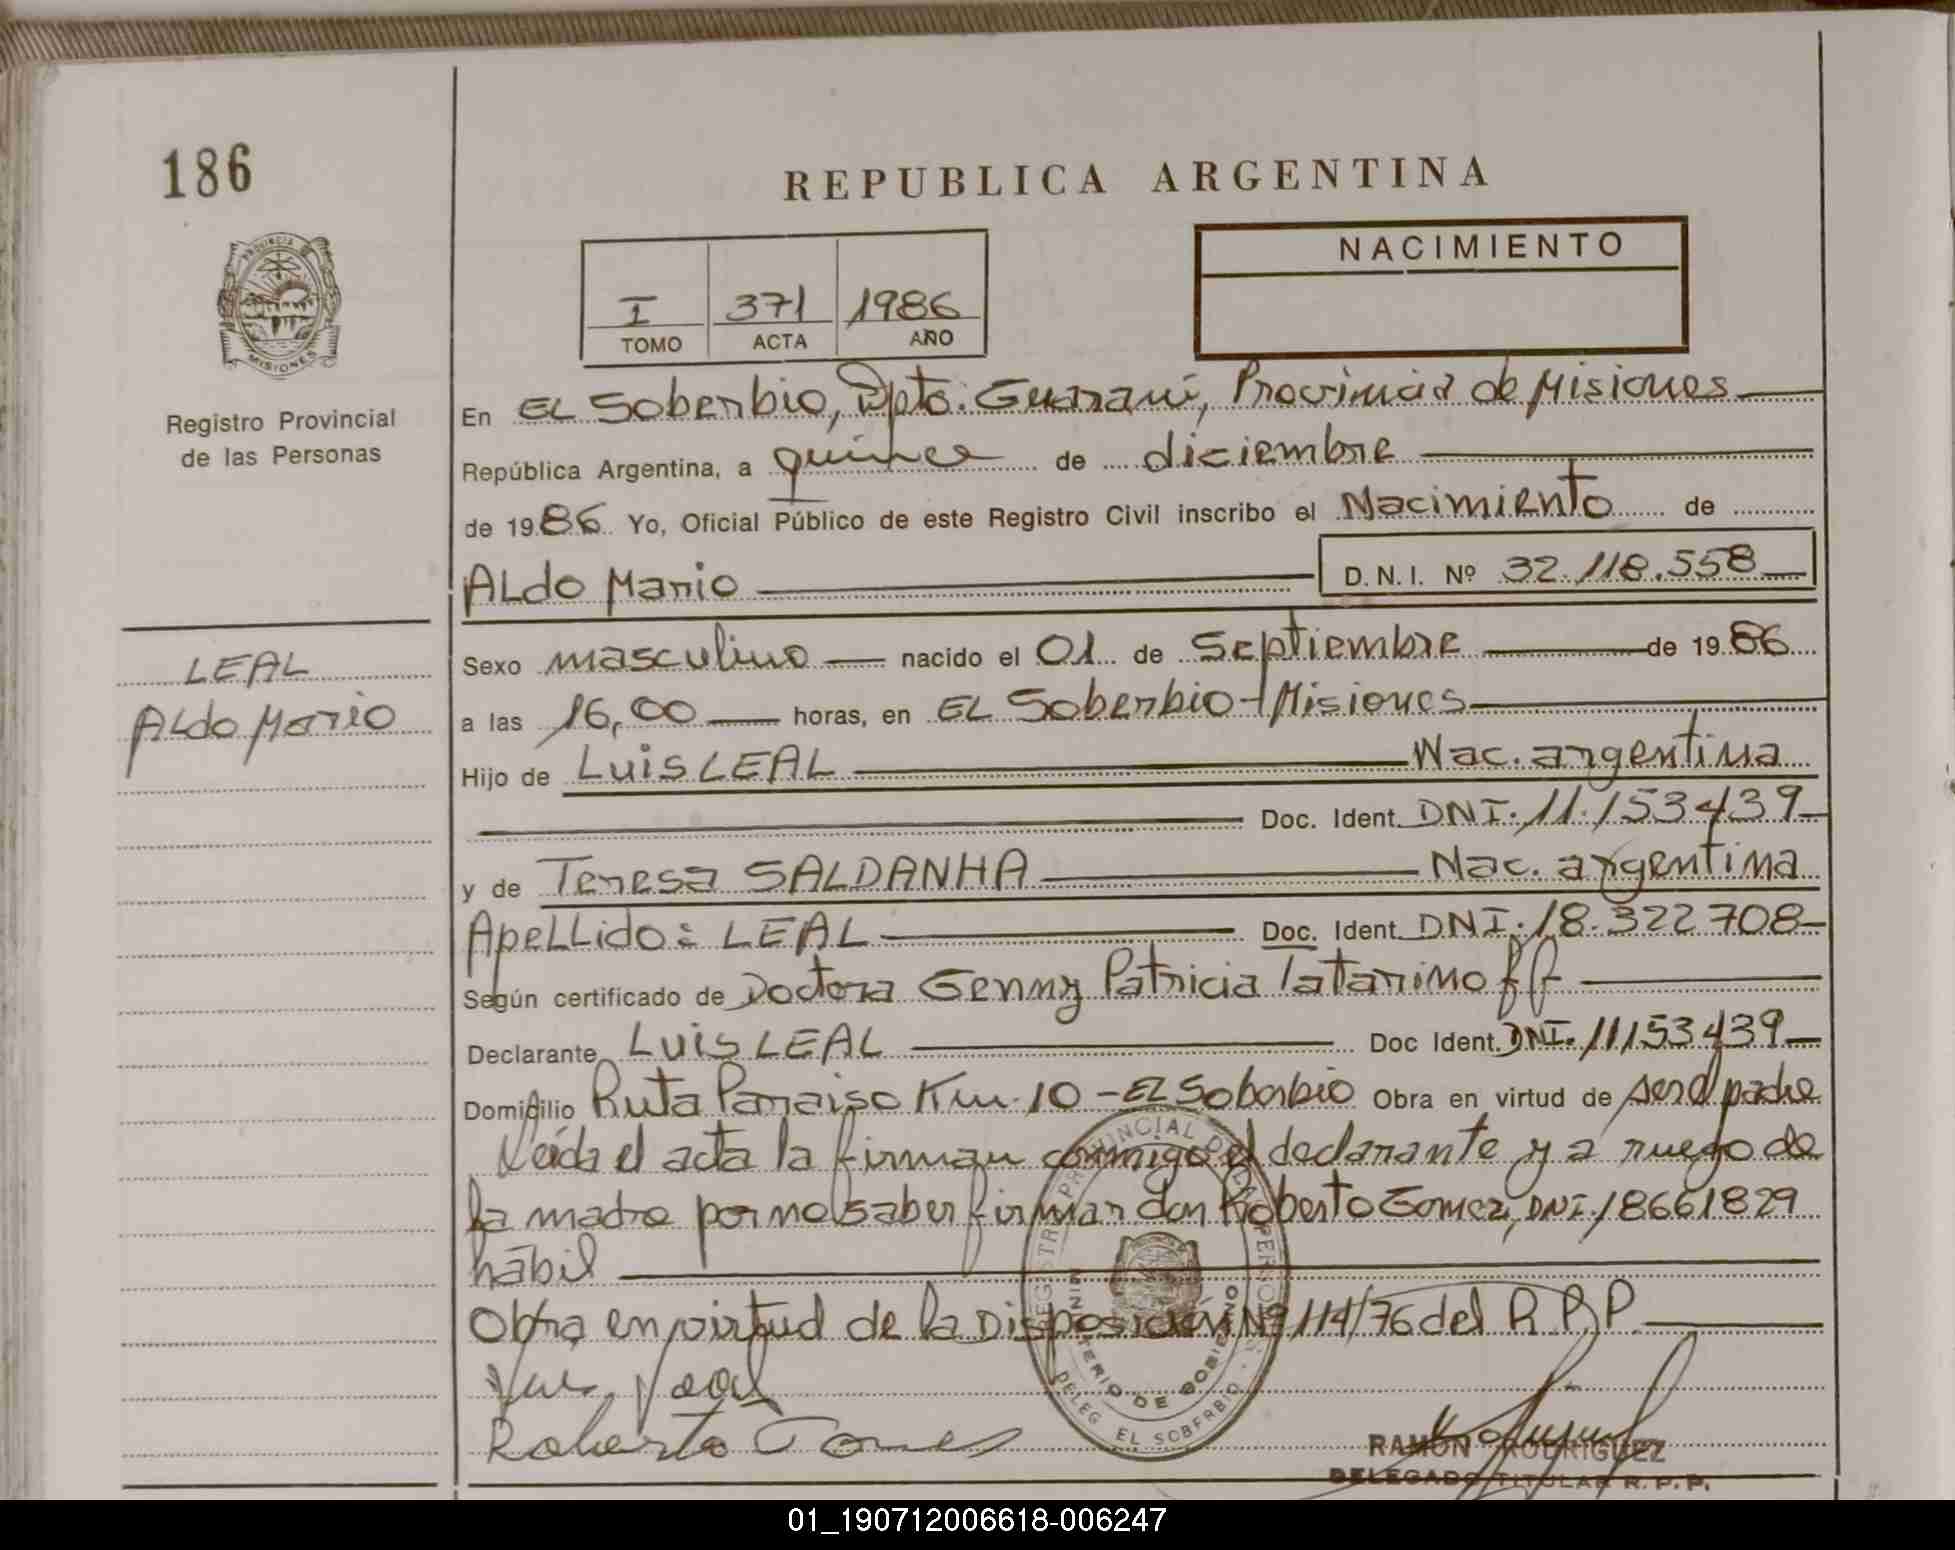 186
REPUBLICA ARGENTINA
PROVINCIA DE
MISIONES
Registro Provincial
de las Personas
I 371 1986
TOMO ACTA AÑO
NACIMIENTO
En EL Soberbio, Dpto: Guaraní, Provincia de Misiones
República Argentina, a quince de diciembre
de 1986 Yo, Oficial Público de este Registro Civil inscribo el Nacimiento de
ALdo Mario D.N.I. Nº 32.118.558
LEAL
ALdo Mario
Sexo masculino nacido el 01 de Septiembre de 1986
a las 16,00 horas, en EL Soberbio - Misiones
Hijo de Luis LEAL Nac. argentina
Doc. Ident. DNI. 11.153439
y de Teresa SALDANHA Nac. argentina
ApeLLido: LEAL Doc. Ident. DNI. 18.322708
Según certificado de Doctora Genny Patricia
Declarante Luis LEAL Doc Ident. DNI. 11153439
Domicilio Ruta Paraiso Km 10 - EL Soberbio Obra en virtud de ser el padre
Leída el acta la firman conmigo el declarante y a ruego de
la madre por no saber firmar don Roberto Gomez, DNI. 18661829
hábil
Obra en virtud de la Disposición Nº 114/76 del R.P.P.
REGISTRO PROVINCIAL DE LAS PERSONAS
MINISTERIO DE GOBIERNO
DELEG EL SOBERBIO
Roberto Gomes
RAMON RODRIGUEZ
DELEGADO TITULAR R.P.P.
01_190712006618-006247